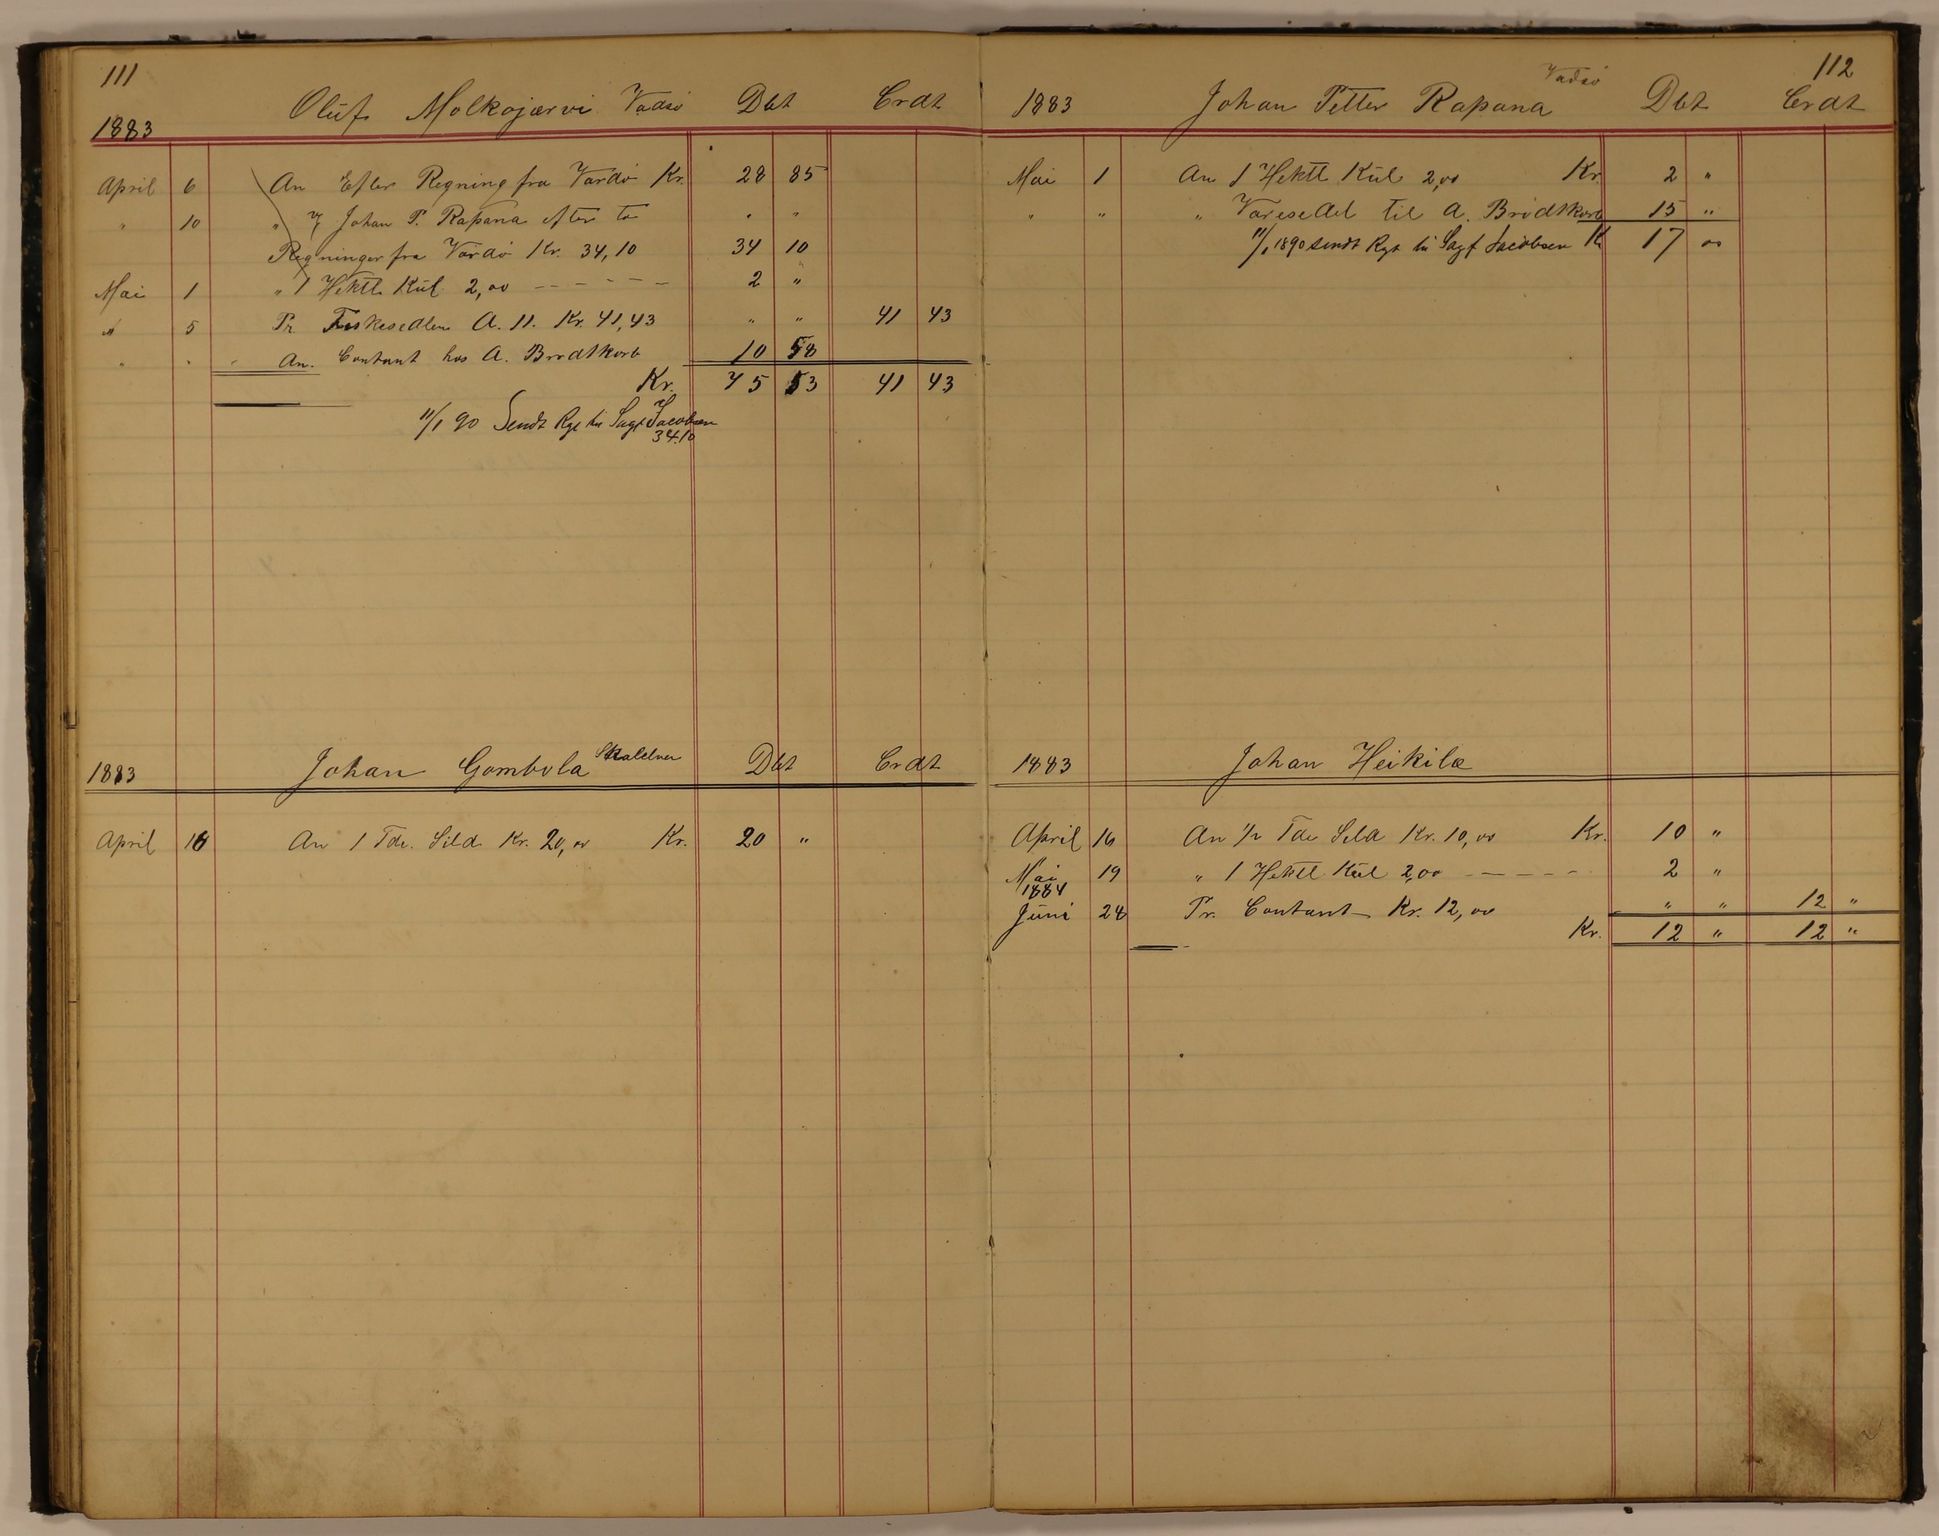 111
Oluf Molkojærvi Vadsö Dbt Crdt
1883
April 6 An Efter Regning fra Vardö Kr. 28 85
" 10 " Johan P. Rapana efter to " "
Regninger fra Vardö Kr. 34,10 34 10
Mai 1 " 1 Hektl. Kül 2,00 - - - - - 2 "
" 5 Pr Fiskesedlen A. 11. Kr. 41,43 " " 41 43
" " An. Contant hos A. Brodtkorb 10 58
Kr. 75 53 41 43
11/1 90 Sendt Rgt til Sagf Jacobsen
34.10
1883 Johan Gombola Dbt Crdt
April 16 An 1 Tde. Sild Kr. 20,00 Kr. 20 "
112
1883 Johan Petter Rapana Vadsö Dbt Crdt
Mai 1 An 1 Hektl Kül 2,00 Kr. 2 "
" " " Varesedel til A. Brodtkorb 15 "
11/1 1890 sendt Rgt til Sagf Jacobsen K 17 00
1883 Johan Heikila
April 16 An 1/2 Tde Sild Kr. 10,00 Kr. 10 "
Mai 19 " 1 Hektl Kül 2,00 - - - - - 2 "
1884
Juni 28 Pr. Contant Kr. 12,00 " " 12 "
Kr. 12 " 12 "